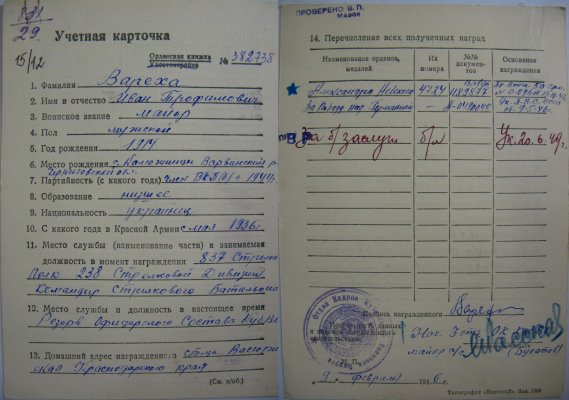 831
29.
15/12
Учетная карточка
Орденская книжка
Удостоверение № 382738
1. Фамилия Вареха
2. Имя и отчество Иван Трофимович
3. Воинское звание майор
4. Пол мужской
5. Год рождения 1914
6. Место рождения с. Калюжинцы Варвинский р-
Черниговской обл.
7. Партийность (с какого года) член ВКП(б) с 1944г.
8. Образование низшее
9. Национальность украинец
10. С какого года в Красной Армии с мая 1936г
11. Место службы (наименование части) и занимаемая
должность в момент награждения 837 Стрелк.
Полк 238 Стрелковой Дивизии
Командир Стрелкового Батальона
12. Место службы и должность в настоящее время
Резерв Офицерского Состава
13. Домашний адрес награжденного
Краснодарского края
(См. н/об.)
ПРОВЕРЕНО В. П.
14. Перечисление всех полученных наград
Наименование орденов, медалей
Их номера
№№ документов
Основание награждения
Александра Невского 4724
За Победу над Германией — М-0490048 Ук. П.В.С. СССР
от 9-5-45г.
За б/заслуги б/л Ук. 20.6.49г.
Подпись награжденного
Нач. 3 отд. ОК
майор а/с
9 февраля 1946 г.